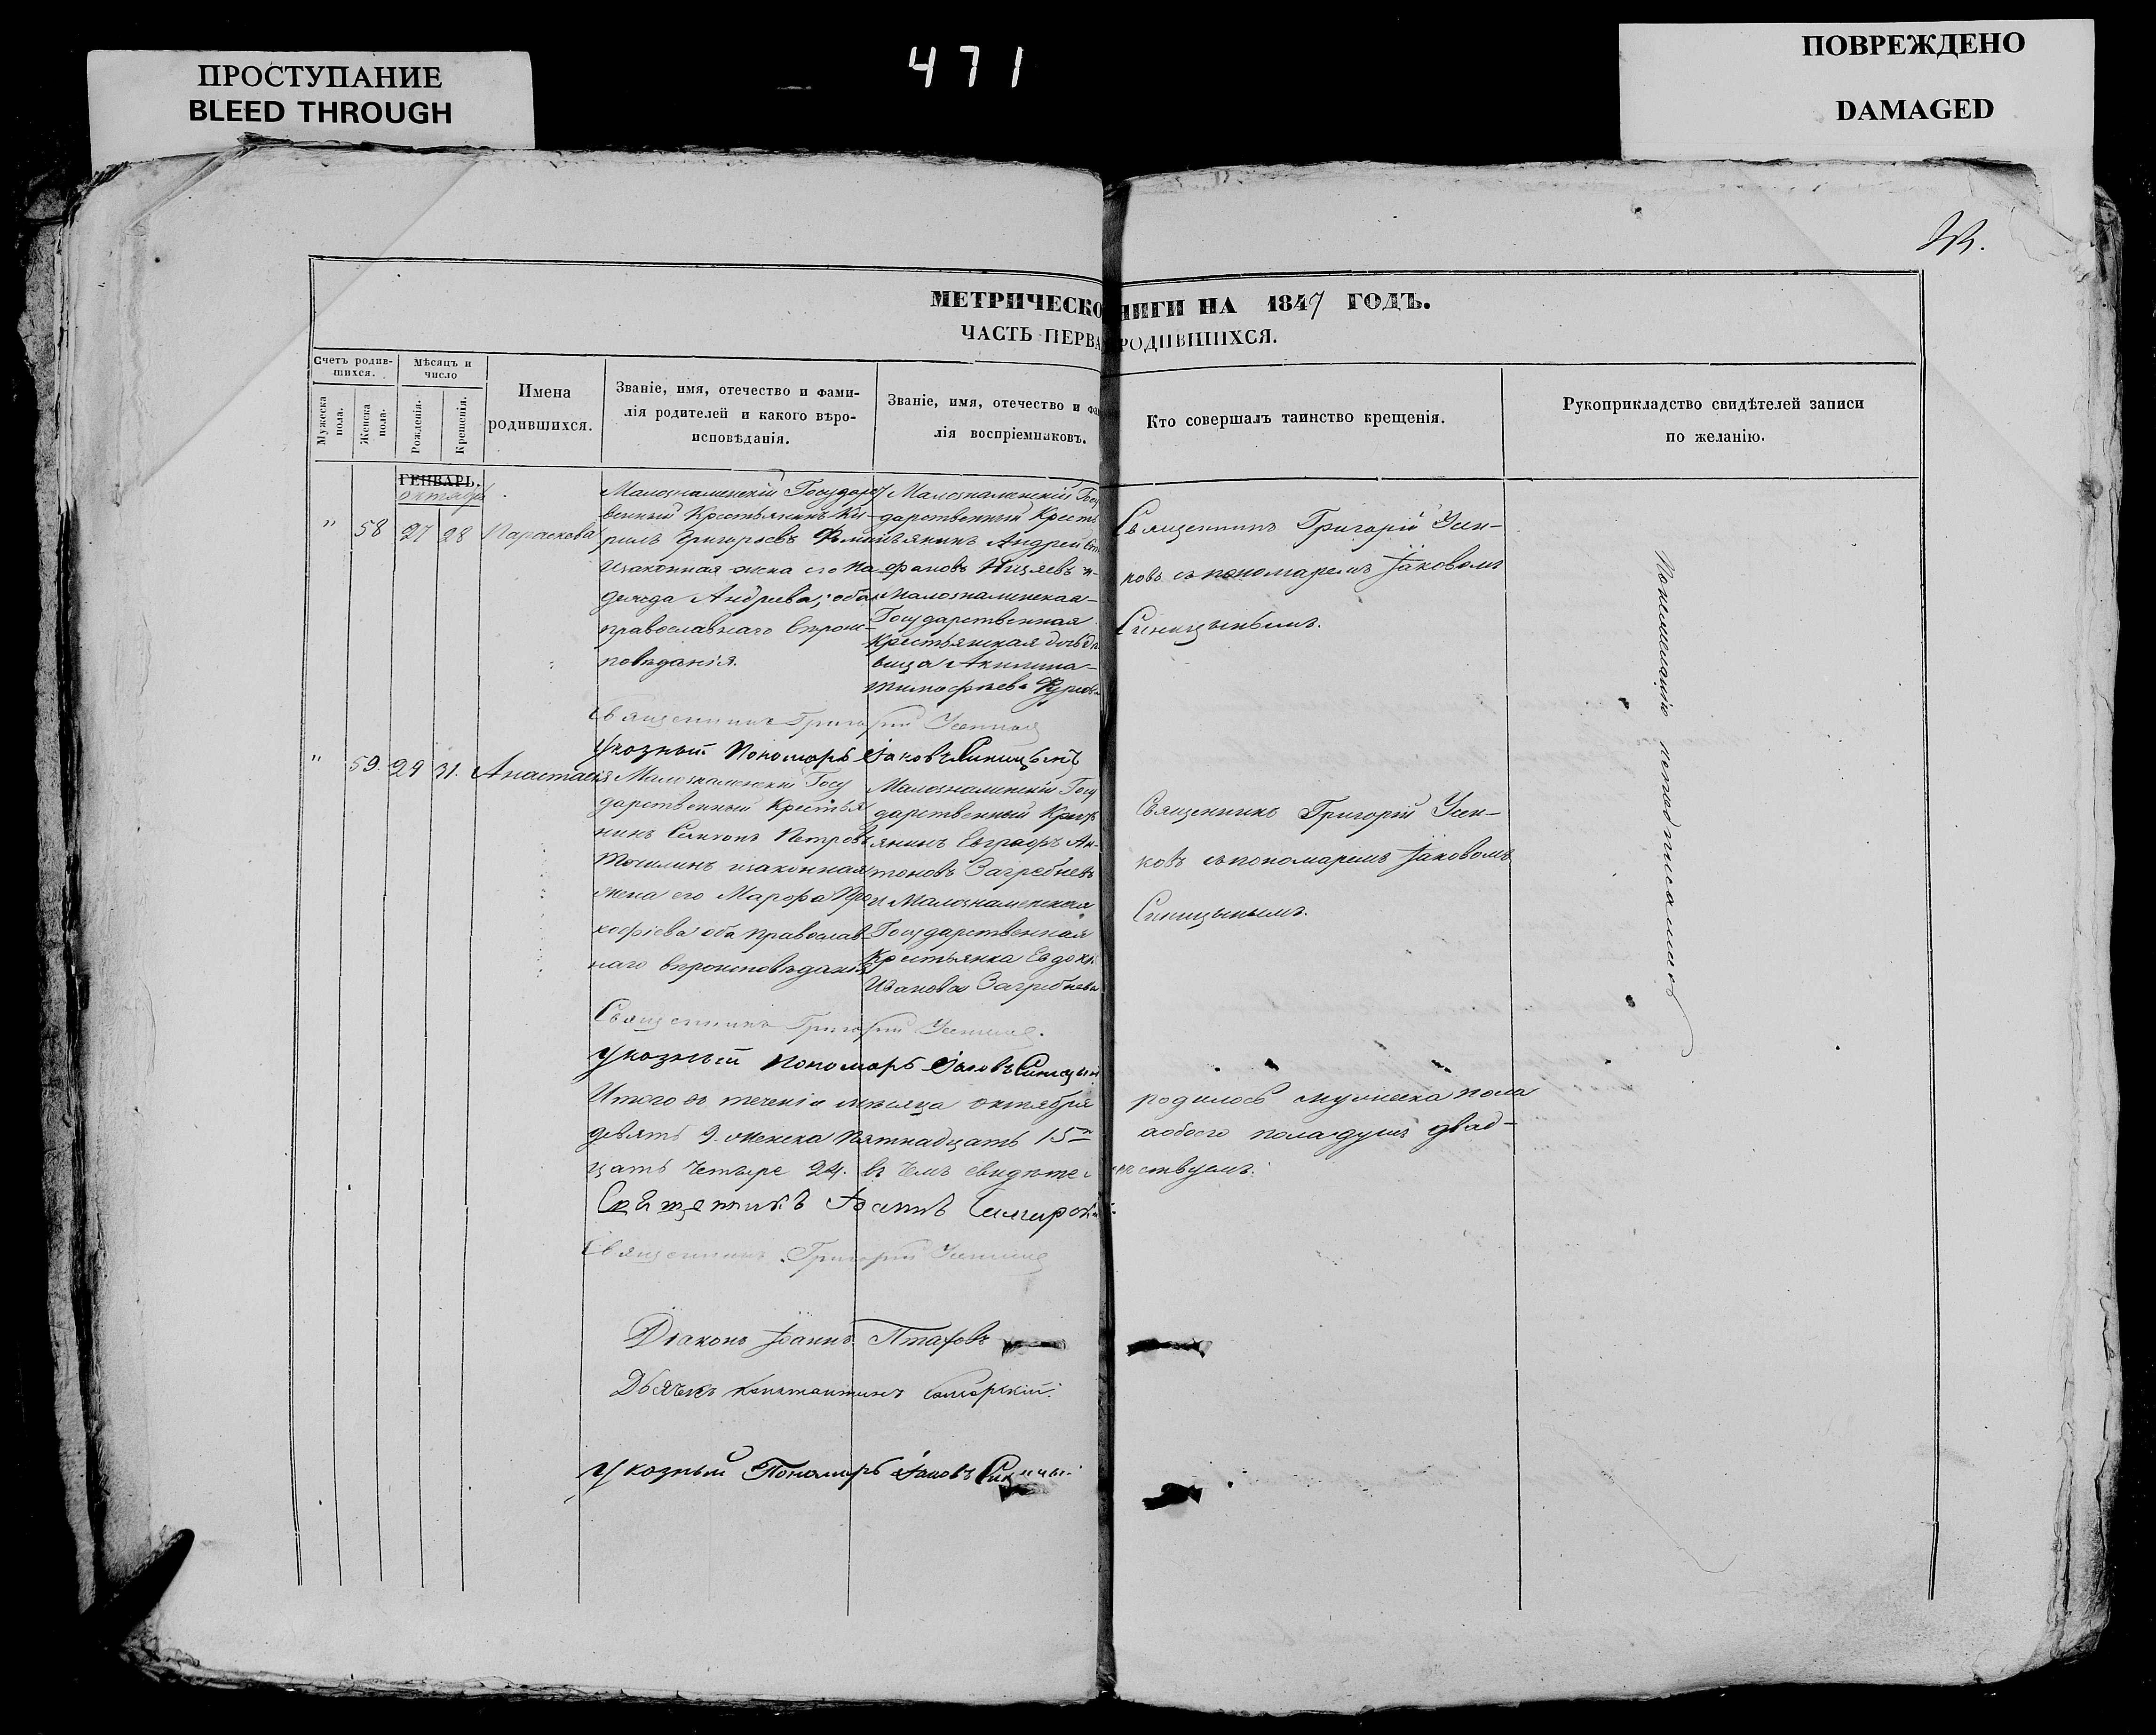 ПРОСТУПАНИЕ
BLEED THROUGH
471
ПОВРЕЖДЕНО
DAMAGED
МЕТРИЧЕСКО НИГИ НА 1847 ГОДЪ.
ЧАСТЬ ПЕРВА РОДИВШИХСЯ.
Счетъ родив-
шихся.
Мужеска
пола.
Женска
пола.
Мѣсяцъ и
число
Рожденія.
Крещенія.
Имена
родившихся.
Званіе, имя, отечество и фами-
лія родителей и какого вѣро-
исповѣданія.
Званіе, имя, отечество и фа
лія воспріемниковъ.
Кто совершалъ таинство крещенія.
Рукоприкладство свидѣтелей записи
по желанію.
ГЕНВАРЬ.
октябрь
" 58 27 28 Параскова
Малознаменскій Государст
венный Крестьянинъ Ки-
рилъ Григорьевъ
изаконная жена его На
дежда Андреева, оба
православнаго вѣроис-
повѣданія.
Малознаменскій Госу
дарственный Кресть
янинъ Андрей
фановъ и
Малознаменская
Государственная
Крестьянская дочь дѣ
вица Акилина
Тимофѣева
Священникъ Григорій Усен-
ковъ съ пономаремъ Іаковомъ
Синицынымъ.
Понежеланію неподписались
Священникъ Григорій
Указный Пономарь Іаковъ Синицынъ
" 59 29 31. Анастасія
Малознаменскій Госу
дарственный Крестья
нинъ Симеонъ Петровъ
Точилинъ изаконная
жена его Марфа Про
кофіева оба православ
наго вѣроисповѣданія
Малознаменскій Госу
дарственный Кресть
янинъ Евграфъ Ан-
тоновъ Загребневъ
и Малознаменская
Государственная
Крестьянка Евдокі
Иванова Загребнева
Священникъ Григорій Усен-
ковъ съ пономаремъ Іаковомъ
Синицынымъ.
Священникъ Григорій
Указный Пономарь Іаковъ Синицын
Итого въ теченіи мѣсяца октября родилось мужеска пола
девять 9. женска Пятнадцать 15 аобоего пола душъ двад-
цать четыре 24. въ чемъ свидѣтельствуемъ.
Священникъ Іоаннъ
Священникъ Григорій
Діаконъ Іоаннъ Птаховъ
Дьячекъ Константинъ Самарскій.
Указный Пономарь Іаковъ Синицын